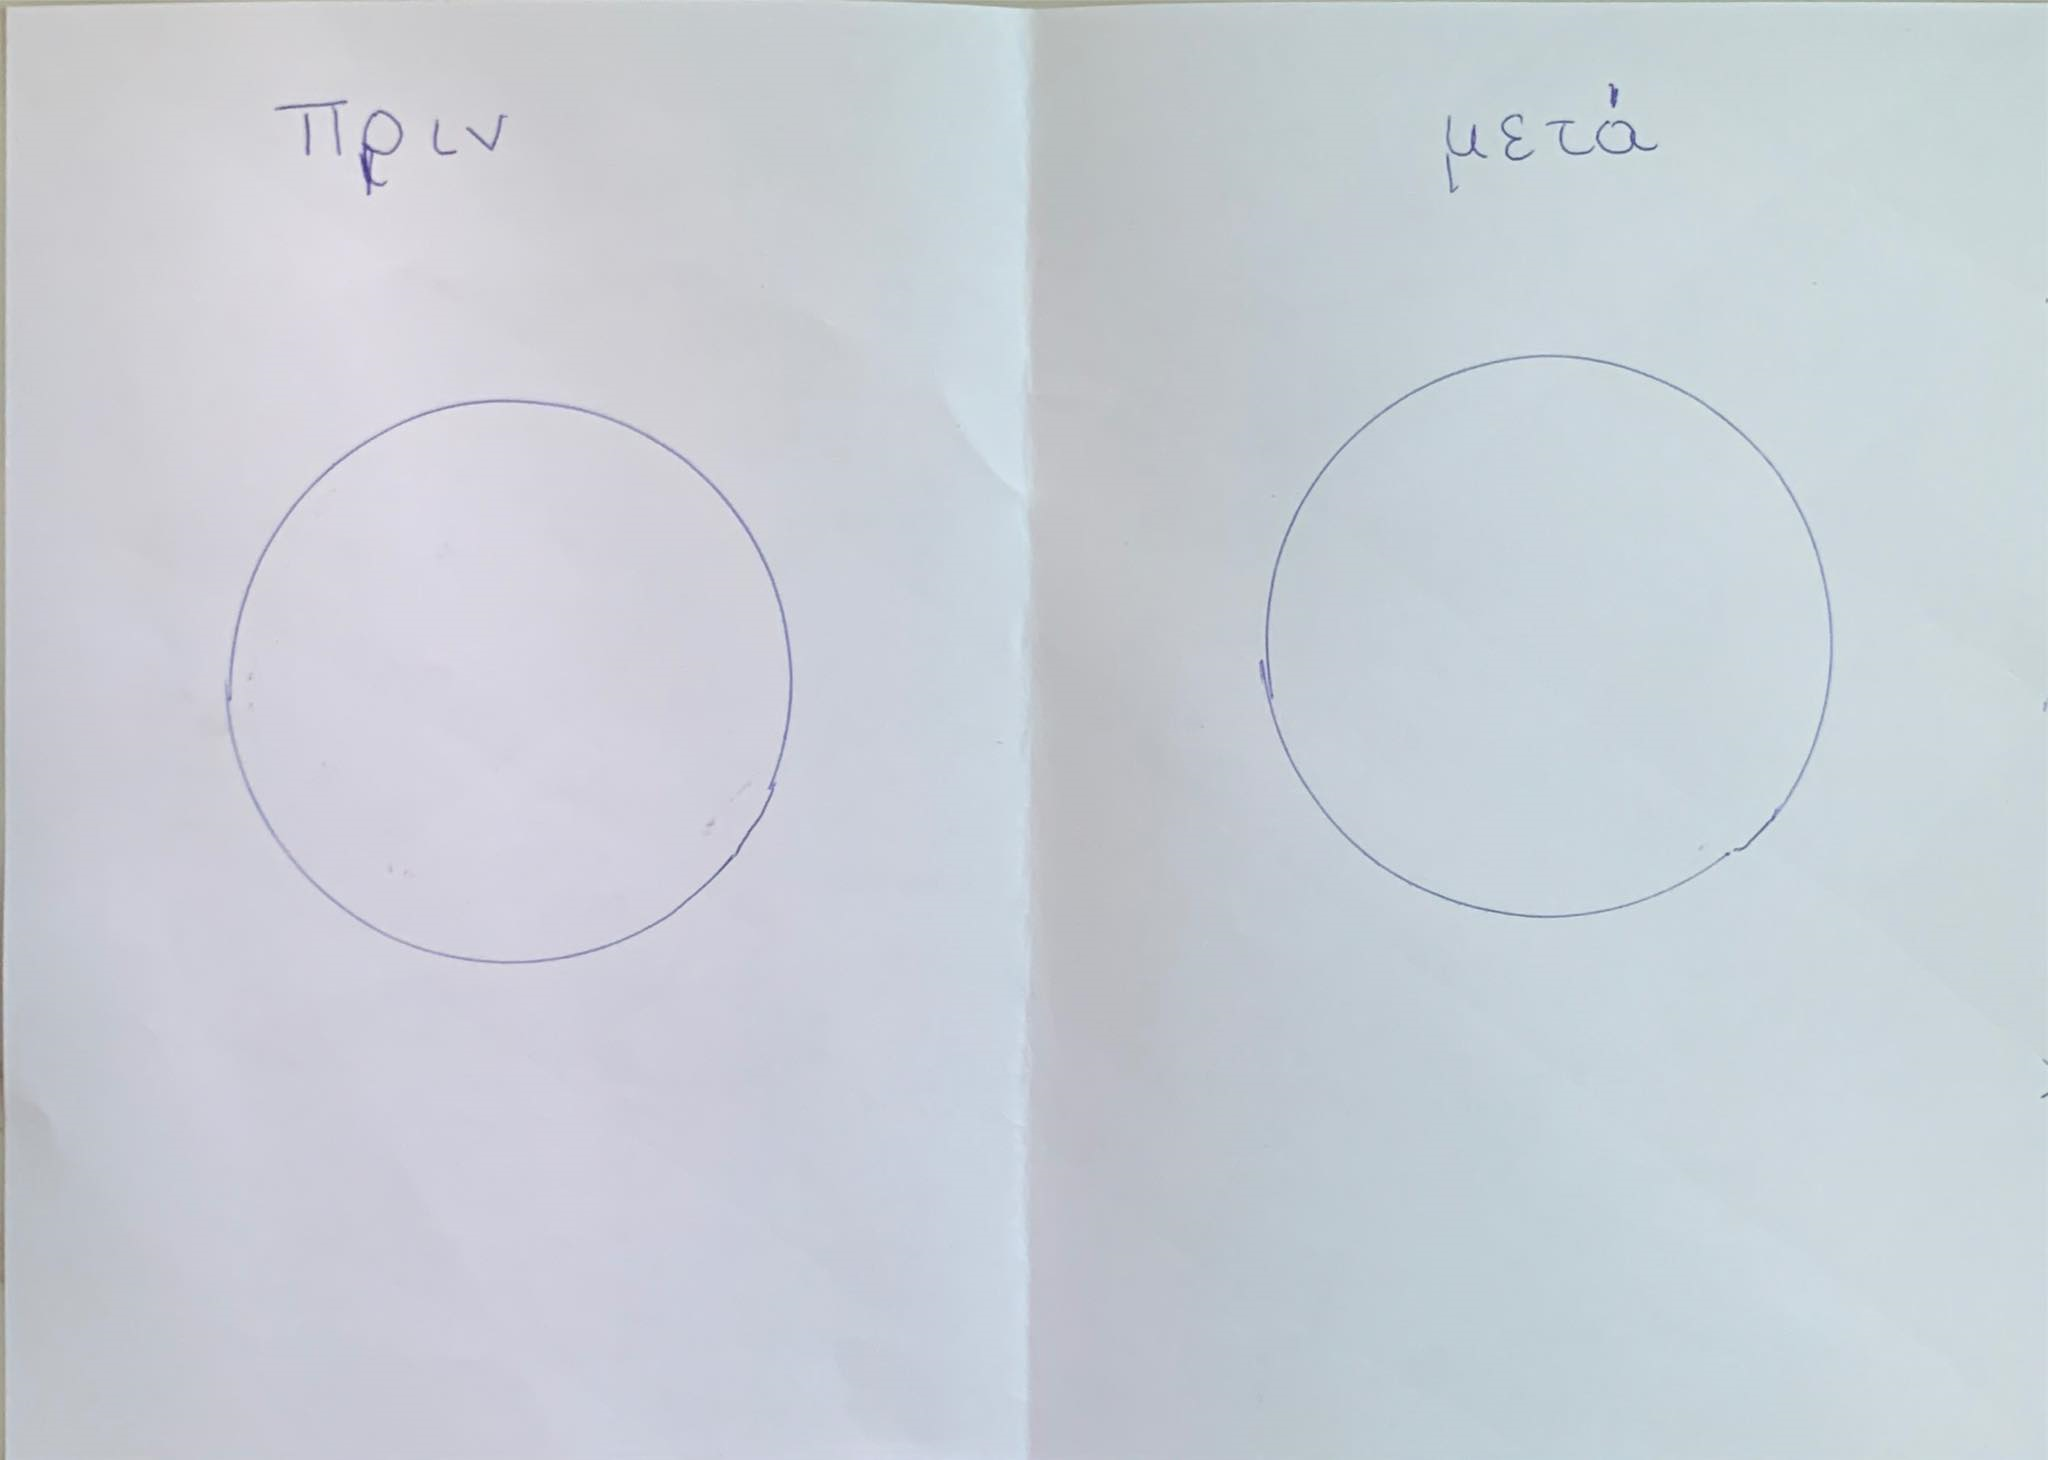 Πριν
μετά